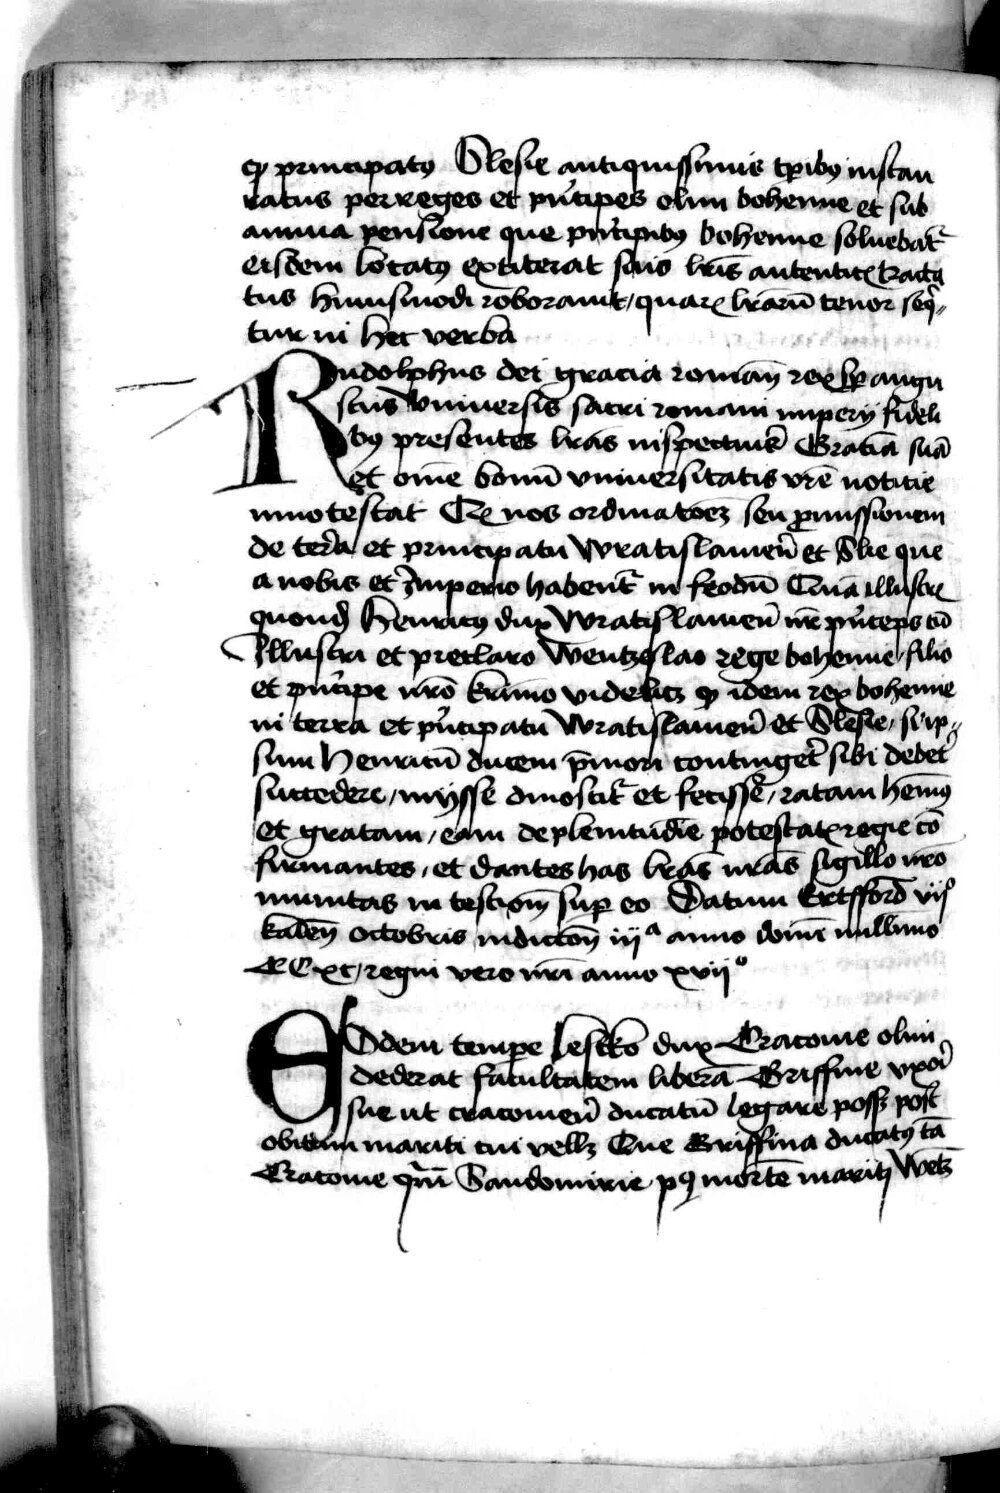 qͻ principatꝰ Slesie antiquissimis tꝑibꝰ instau
ratus per reges et pͥncipes olim bohemie et sub
annua pensione que pͥncipibꝰ bohemie soluebat᷑
eisdem locatꝰ extiterat suis lr̄is autenticꝭ tracta
tus huiusmodi roborauit / quaꝝ lr̄arū tenor seqͥ
tur in hec verba
Rudolphus dei gracia roman̄ rex sꝑ augu
stus Vniuersis sacri romani imperij fideli
bꝰ presentes lr̄as inspecturis Gratiā suā
et om̄e bonū vniuersitatis vr̄e notitie
innotescat Qꝫ nos ordinatōeꝫ seu ꝓmissionem
de terra et principatu Wratislauien̄ et Slīe que
a nobis et Imperio habent᷑ in feodū Quā illustrꝭ
quond̄ Henricꝰ dux Wratislauien̄ nr̄ pͥnceps cū
Illustri et preclaro Wentzeslao rege bohemie / filio
et pͥncipe nr̄o kr̄imo videlicꝫ qͻ idem rex bohemie
in terra et pͥncipatu Wratislauien̄ et Slesie / si ip-
sum Henricū ducem p̄mori contingeret sibi deberet
succedere / inijsse dinoscit᷑ et fecisse / ratam hēmꝰ
et gratam / eam de plenitudīe potestatꝭ regie cō
firmantes / et dantes has lr̄as nr̄as sigillo nr̄o
munitas in testiom̄ suꝑ eo Datum Ertfford vijº
kaden̄ octobris indictōn̄ iijª anno domī millimo
CCxc / regni vero nr̄i anno xvijº
EOdem tempe Lestko dux Cracouie olim
dederat facultatem liberā Griffine vxori
sue ut cracouien̄ ducatū legare possꝫ post
obitum mariti cui vellꝫ Que Griffina ducatꝰ tā
Cracouie qͣm Sandomirie pꝰ mortē mariti Wetz̄